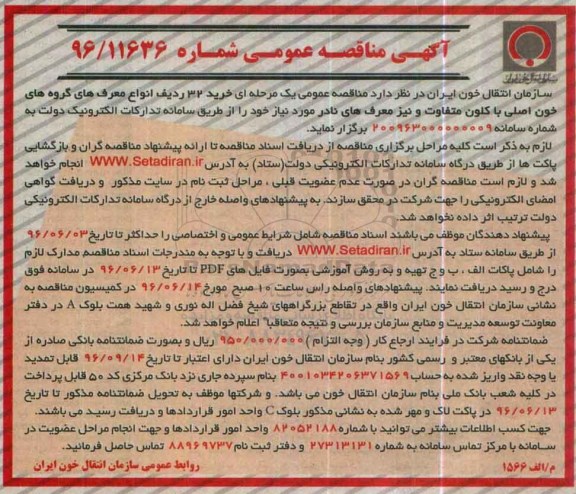 آگهی مناقصه عمومی شماره ۹۶/۱۱۶۳۶
سازمان انتقال خون ایران در نظر دارد مناقصه عمومی یک مرحله ای خرید ۳۲ ردیف انواع معرف های گروه های
خون اصلی با کلون متفاوت و نیز معرف های نادر مورد نیاز خود را از طریق سامانه تدارکات الکترونیک دولت به
شماره سامانه ۲۰۰۹۶۳۰۰۰۰۰۰۰۰۹ برگزار نماید.
لازم به ذکر است کلیه مراحل برگزاری مناقصه از دریافت اسناد مناقصه تا ارائه پیشنهاد مناقصه گران و بازگشایی
پاکت ها از طریق درگاه سامانه تدارکات الکترونیکی دولت(ستاد) به آدرس WWW.Setadiran.ir انجام خواهد
شد و لازم است مناقصه گران در صورت عدم عضویت قبلی ، مراحل ثبت نام در سایت مذکور و دریافت گواهی
امضای الکترونیکی را جهت شرکت در محقق سازند. به پیشنهادهای واصله خارج از درگاه سامانه تدارکات الکترونیکی
دولت ترتیب اثر داده نخواهد شد.
پیشنهاد دهندگان موظف می باشند اسناد مناقصه شامل شرایط عمومی و اختصاصی را حداکثر تا تاریخ ۹۶/۰۶/۰۳
از طریق سامانه ستاد به آدرس WWW.Setadiran.ir دریافت و با توجه به مندرجات اسناد مناقصه مدارک لازم
را شامل پاکات الف ، ب و ج تهیه و به روش آموزشی بصورت فایل های PDF تا تاریخ ۹۶/۰۶/۱۳ در سامانه فوق
درج و رسید دریافت نمایند. پیشنهادهای واصله راس ساعت ۱۰ صبح مورخ ۹۶/۰۶/۱۴ در کمیسیون مناقصه به
نشانی سازمان انتقال خون ایران واقع در تقاطع بزرگراههای شیخ فضل اله نوری و شهید همت بلوک A در دفتر
معاونت توسعه مدیریت و منابع سازمان بررسی و نتیجه متعاقبا" اعلام خواهد شد.
ضمانتنامه شرکت در فرایند ارجاع کار ( وجه التزام ) ۹۵۰/۰۰۰/۰۰۰ ریال و بصورت ضمانتنامه بانکی صادره از
یکی از بانکهای معتبر و رسمی کشور بنام سازمان انتقال خون ایران دارای اعتبار تا تاریخ ۹۶/۰۹/۱۴ قابل تمدید
یا وجه نقد واریز شده به حساب ۴۰۰۱۰۳۴۲۰۶۳۷۱۵۶۹ بنام سپرده جاری نزد بانک مرکزی کد ۵۰ قابل پرداخت
در کلیه شعب بانک ملی بنام سازمان انتقال خون می باشد. و شرکتها موظف به تحویل ضمانتنامه مذکور تا تاریخ
۹۶/۰۶/۱۳ در پاکت لاک و مهر شده به نشانی مذکور بلوک C واحد امور قراردادها و دریافت رسید می باشند.
جهت کسب اطلاعات بیشتر می توانید با شماره ۸۲۰۵۲۱۸۸ واحد امور قراردادها و جهت انجام مراحل عضویت در
سامانه با مرکز تماس سامانه به شماره ۲۷۳۱۳۱۳۱ و دفتر ثبت نام ۸۸۹۶۹۷۳۷ تماس حاصل فرمائید.
م/الف ۱۵۶۶ روابط عمومی سازمان انتقال خون ایران